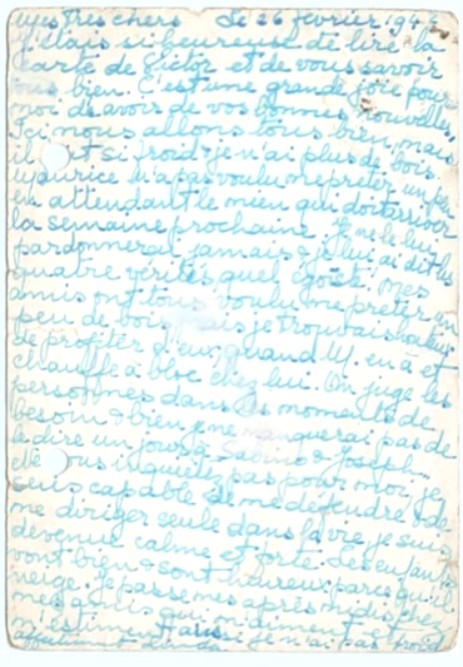 Mes Très chers Le 26 février 194
J'étais si heureuse de lire la
carte de Victor et de vous savoir
tous bien. C'est une grande joie pour
moi d'avoir de vos bonnes nouvelles.
Ici nous allons tous bien, mais
il fait si froid & je n'ai plus de bois.
Maurice n'a pas voulu me prêter un peu
en attendant le mien qui doit arriver
la semaine prochaine. Je ne le lui
pardonnerai jamais & je lui ai dit les
quatre vérités quel égoïste. Mes
amis ont tous voulu me prêter un
peu de bois mais je trouvais honteux
de profiter d'eux quand M. en a et
chauffe à bloc chez lui. On juge les
personnes dans les moments de
besoin & bien je ne manquerai pas de
le dire un jour à Sabine & Joseph.
Ne vous inquiétez pas pour moi, je
suis capable de me défendre & de
me diriger seule dans la vie je suis
devenue calme et forte. Les enfants
vont bien & sont heureux parce qu'il
neige. Je passe mes après midis chez
mes amis qui m'aiment et
m'estiment aussi je n'ai pas froid
affectueux